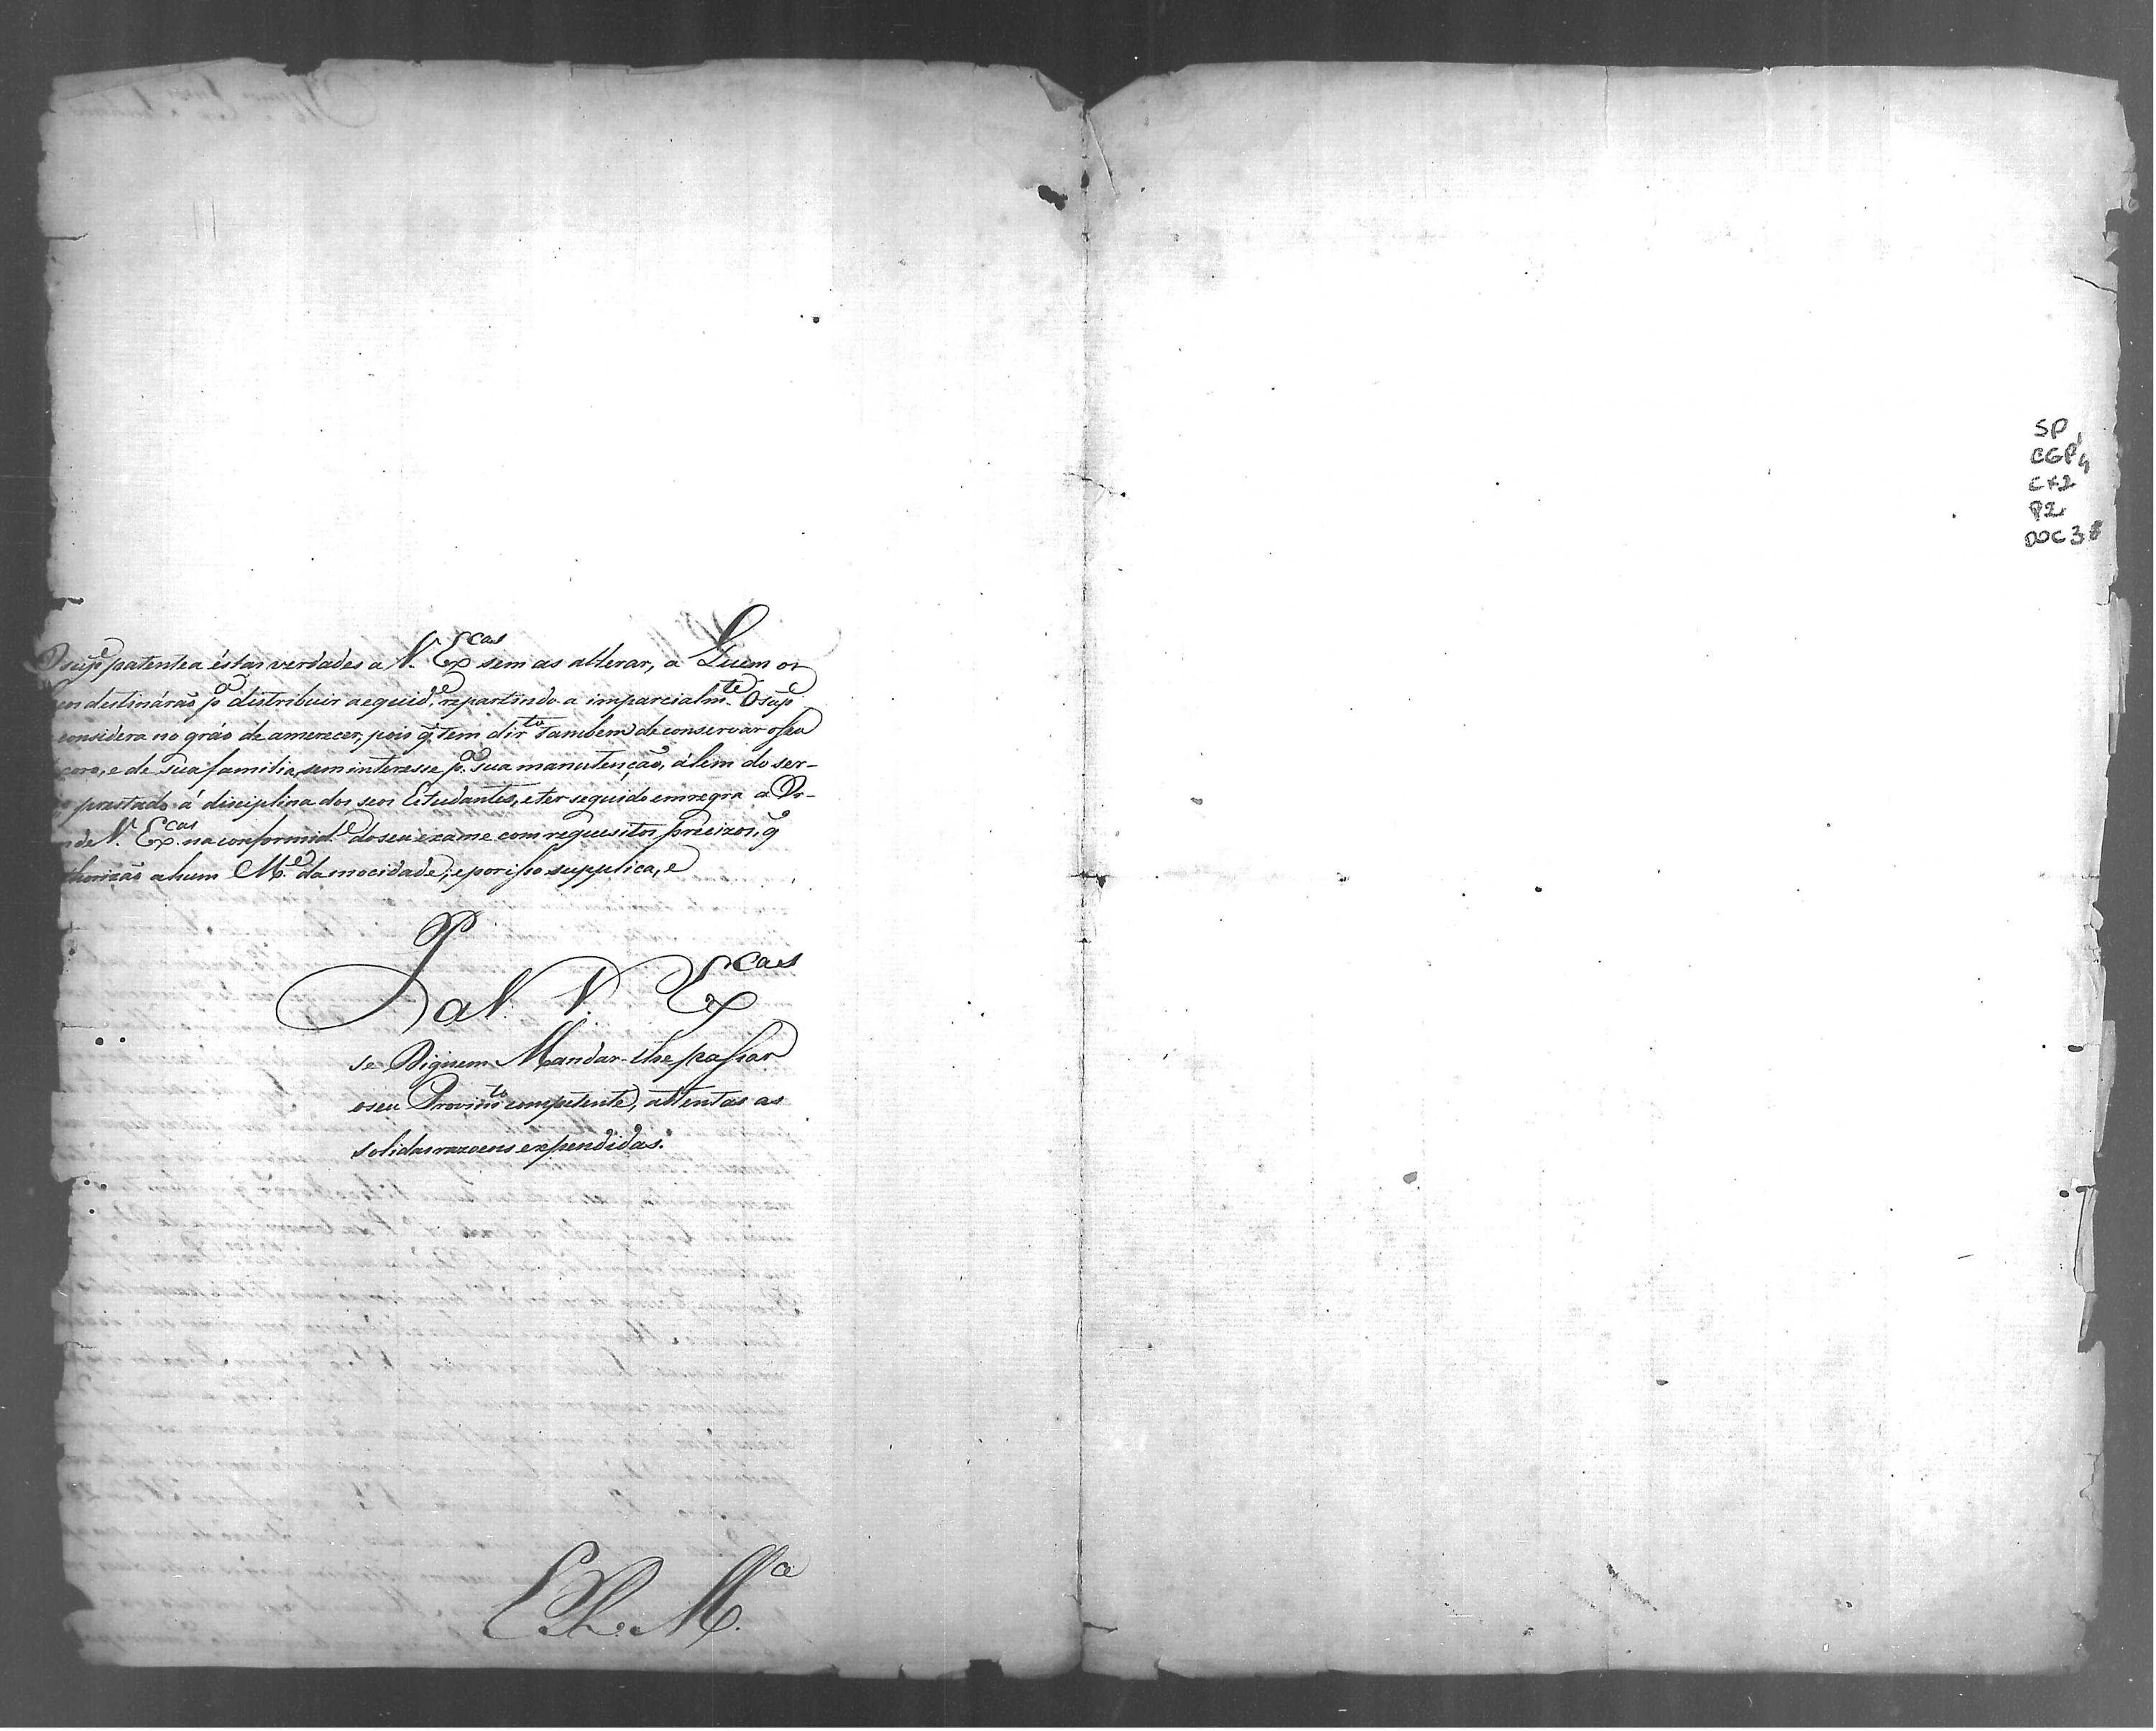 O sup.e patentea éstas verdades a V. Ex.cas sem as alterar, a Quem os
destinárão p.a distribuir a equid.e, repartindo-a imparcialm.te O sup.e
considera no gráo de a merecer, pois q̃ tem dir.to tambem de conservar o seu
e de sua familia, sem interesse p.a sua manutenção, álem do ser-
prestado á disciplina dos seos Estudantes, e ter seguido em regra a Or-
de V. Ex.cas na conformid.e do seu exame com requesitos precizos, q̃
a hum M.e da mocidade; e por isso supplica, e
P. a V. V. Ex.cas
se Dignem Mandar-lhe passar
o seu Provim.to competente, attentas as
solidas razoens expendidas.
E. R. M.ce
SP
CGP
CX2
P2
DOC 3